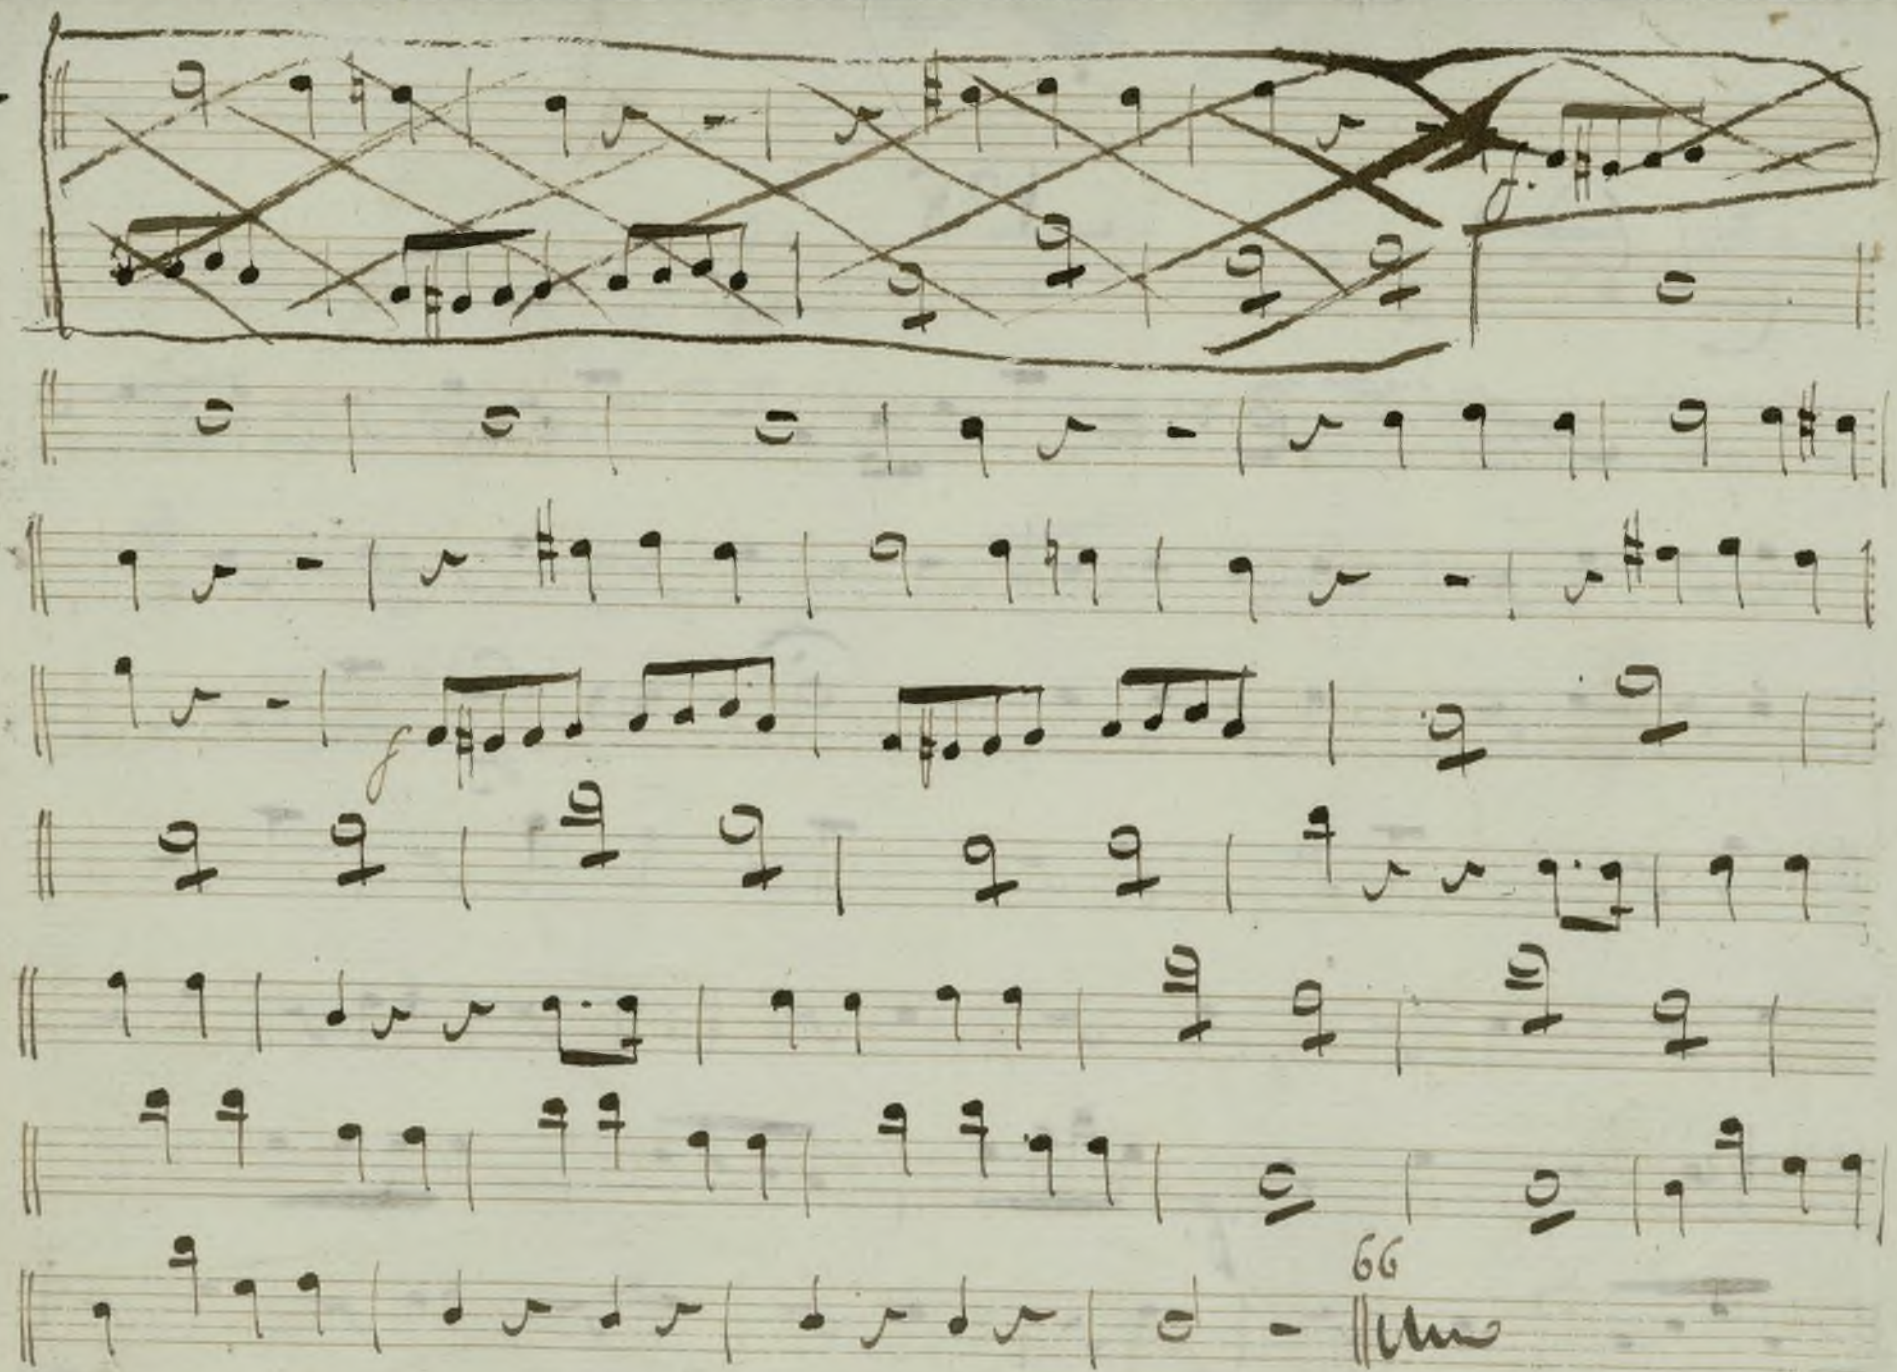 f.
f
66